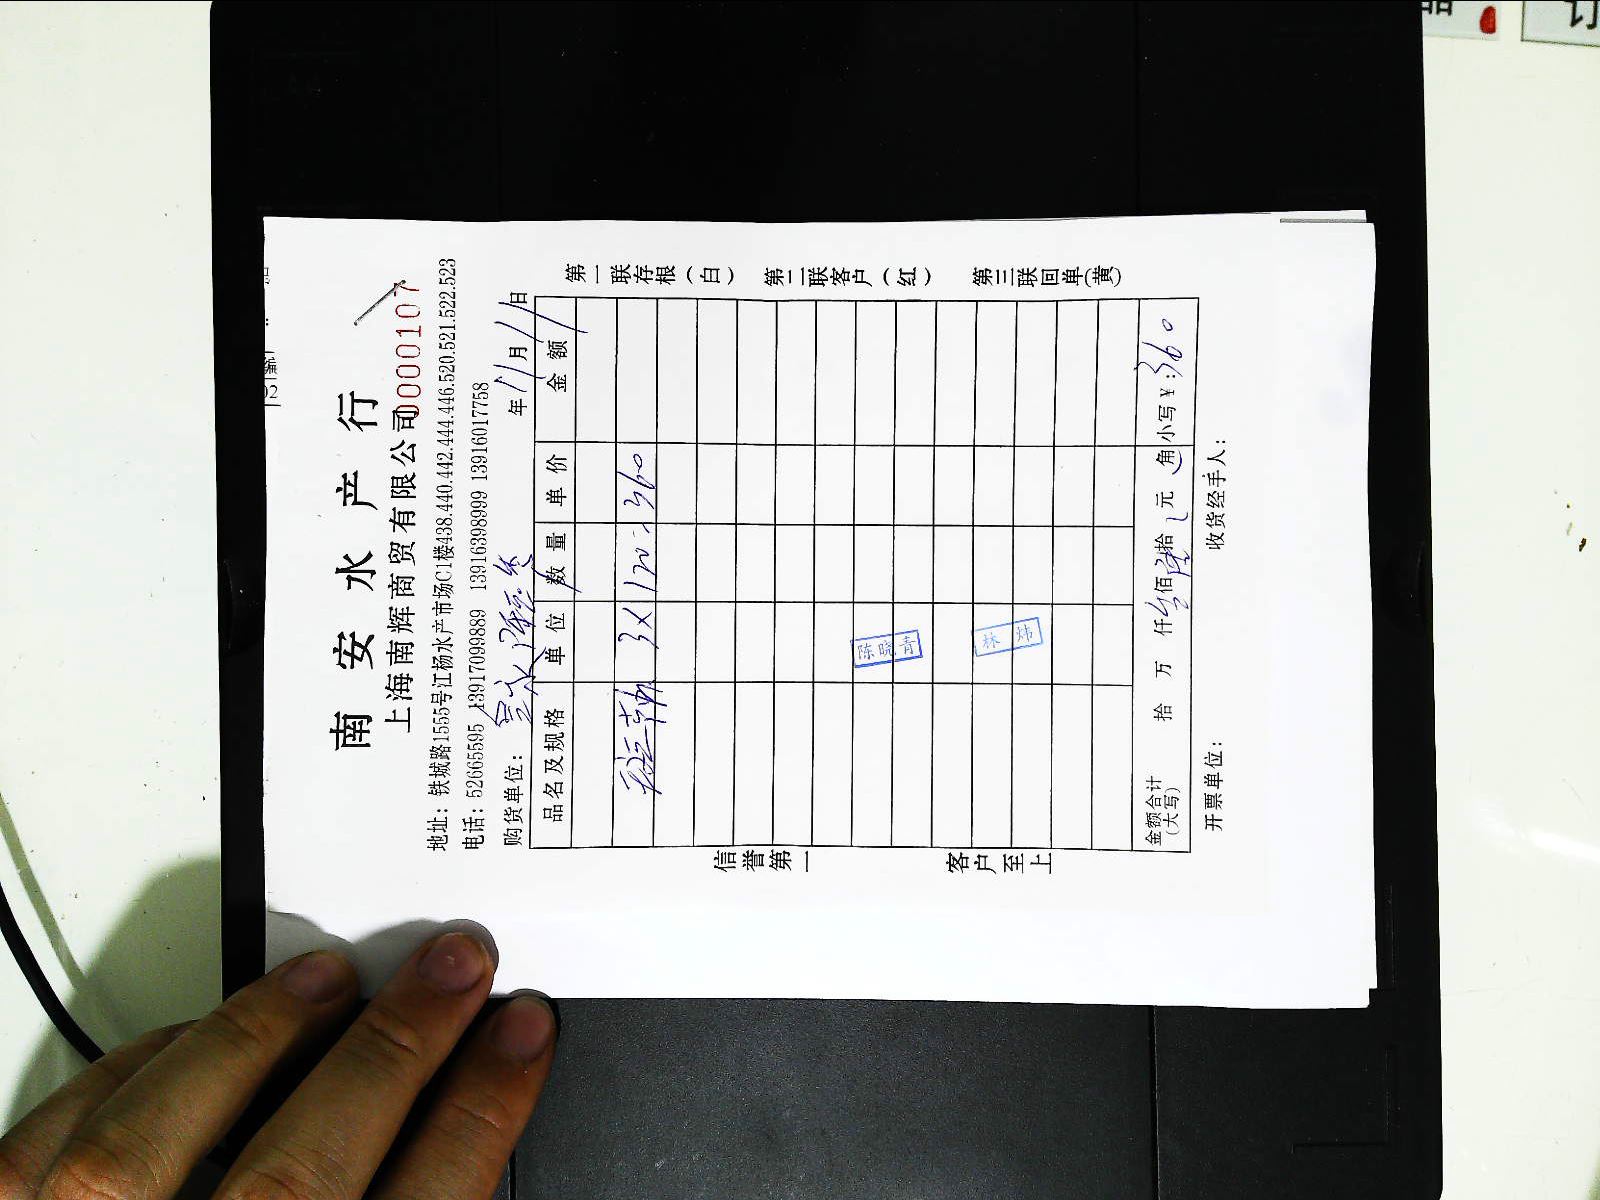 南安水产行
上海南辉商贸有限公司
0000107
地址：铁城路1555号江杨水产市场C1楼438.440.442.444.446.520.521.522.523
电话：52665595 13917099889 13916398999 13916017758
购货单位： 年11月11日
品名及规格 单位 数量 单价 金额
3×120=360
陈晓青
林炜
金额合计(大写) 拾 万 仟 佰 拾 元 角 小写¥：360
开票单位： 收货经手人：
信誉第一 客户至上
第一联存根（白） 第二联客户（红） 第三联回单(黄)